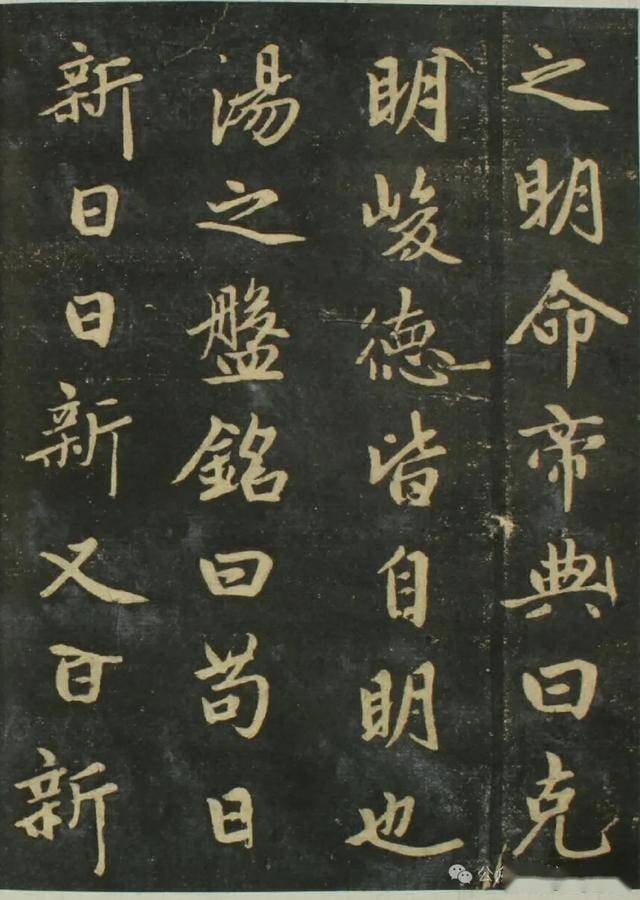 之明命帝典曰克
明峻德皆自明也
湯之盤銘曰苟日
新日日新又日新